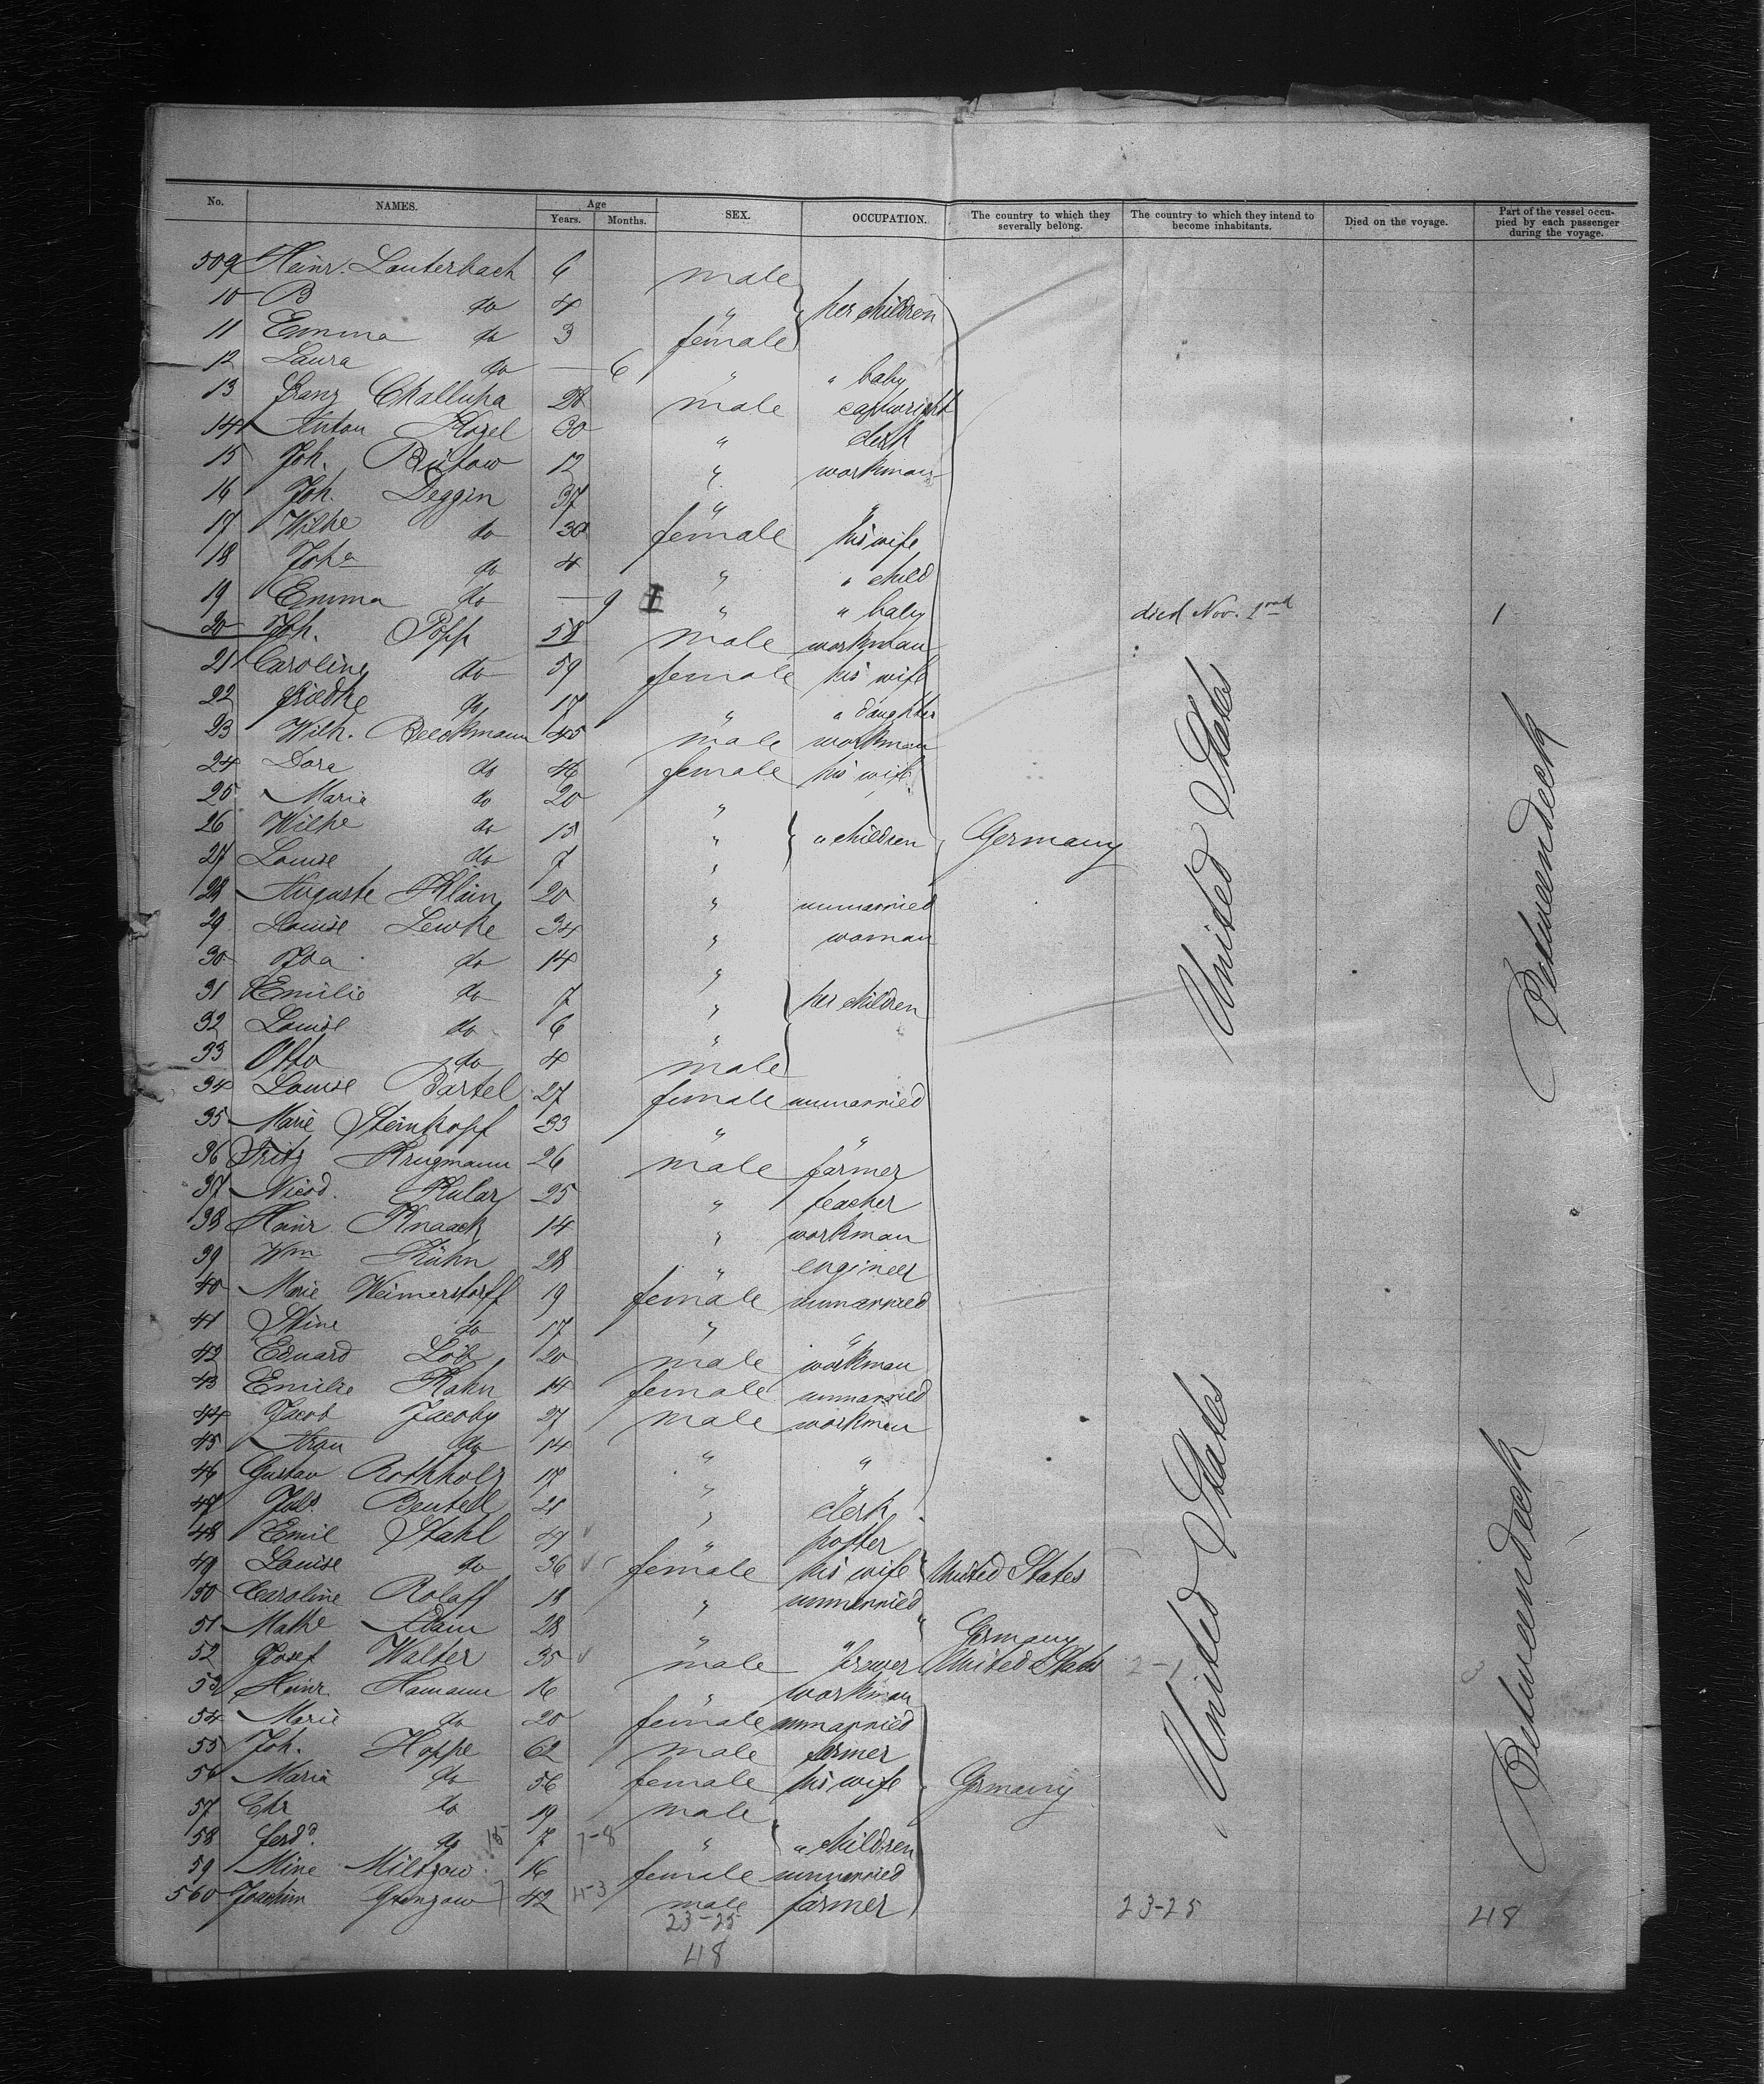 No. NAMES. Age Years. Months. SEX. OCCUPATION. The country to which they severally belong. The country to which they intend to become inhabitants. Died on the voyage. Part of the vessel occupied by each passenger during the voyage.
509 Heinr. Lauterbach 6 male
10 B do 4 " her children
11 Emma do 3 female
12 Laura do — 6 " " baby
13 Franz Challupa 28 male
14 Anton Kozel 30 " clerk
15 Joh. Bütow 12 " workman
16 Joh. Deggin 37 " "
17 Wilhe do 30 female his wife
18 Joha do 4 " " child
19 Emma do — 9 " " baby died Nov. 1 1
20 Joh. Popp 58 male workman
21 Caroline do 59 female his wife
22 Friedke do 17 " " daughter
23 Wilh. Beeckmann 45 male workman
24 Dora do 46 female his wife
25 Marie do 20 "
26 Wilhe do 13 " " children Germany United States Betweendeck
27 Louise do 7 "
28 Auguste Klein 20 " unmarried
29 Louise Lewke 34 " woman
30 Ida do 14 "
31 Emilie do 7 " her children
32 Louise do 6 "
33 Otto do 4 male
34 Louise Bartel 27 female unmarried
35 Marie Steinkopf 33 " "
36 Fritz Krugmann 26 male farmer
37 Nicod. Kular 25 " teacher
38 Heinr. Knaack 14 " workman
39 Wm Kühn 28 " engineer
40 Marie Weimerstorff 19 female unmarried
41 Stine do 17 " "
42 Eduard Löb 20 male workman
43 Emilie Kahn 14 female unmarried
44 Jacob Jacoby 27 male workman
45 do 14 " "
46 Gustav Rothholz 17 " "
47 Beutell 21 " clerk
48 Emil Stahl 41 " potter
49 Louise do 36 female his wife United States United States Betweendeck
50 Caroline Rolaff 18 " unmarried
51 Mathe Adam 28 " " Germany
52 Josef Walter 35 male brewer United States 2-1 3
53 Heinr. Hamann 16 " workman
54 Marie do 20 female unmarried
55 Joh. Hoppe 62 male farmer
56 Maria do 56 female his wife Germany
57 Chr do 19 male
58 Ferdd. do 15 7 7-8 " " children
59 Mine Miltzow 16 female unmarried
560 Joachim Grenzow 42 4-3 male farmer 23-25 48
23-25
48